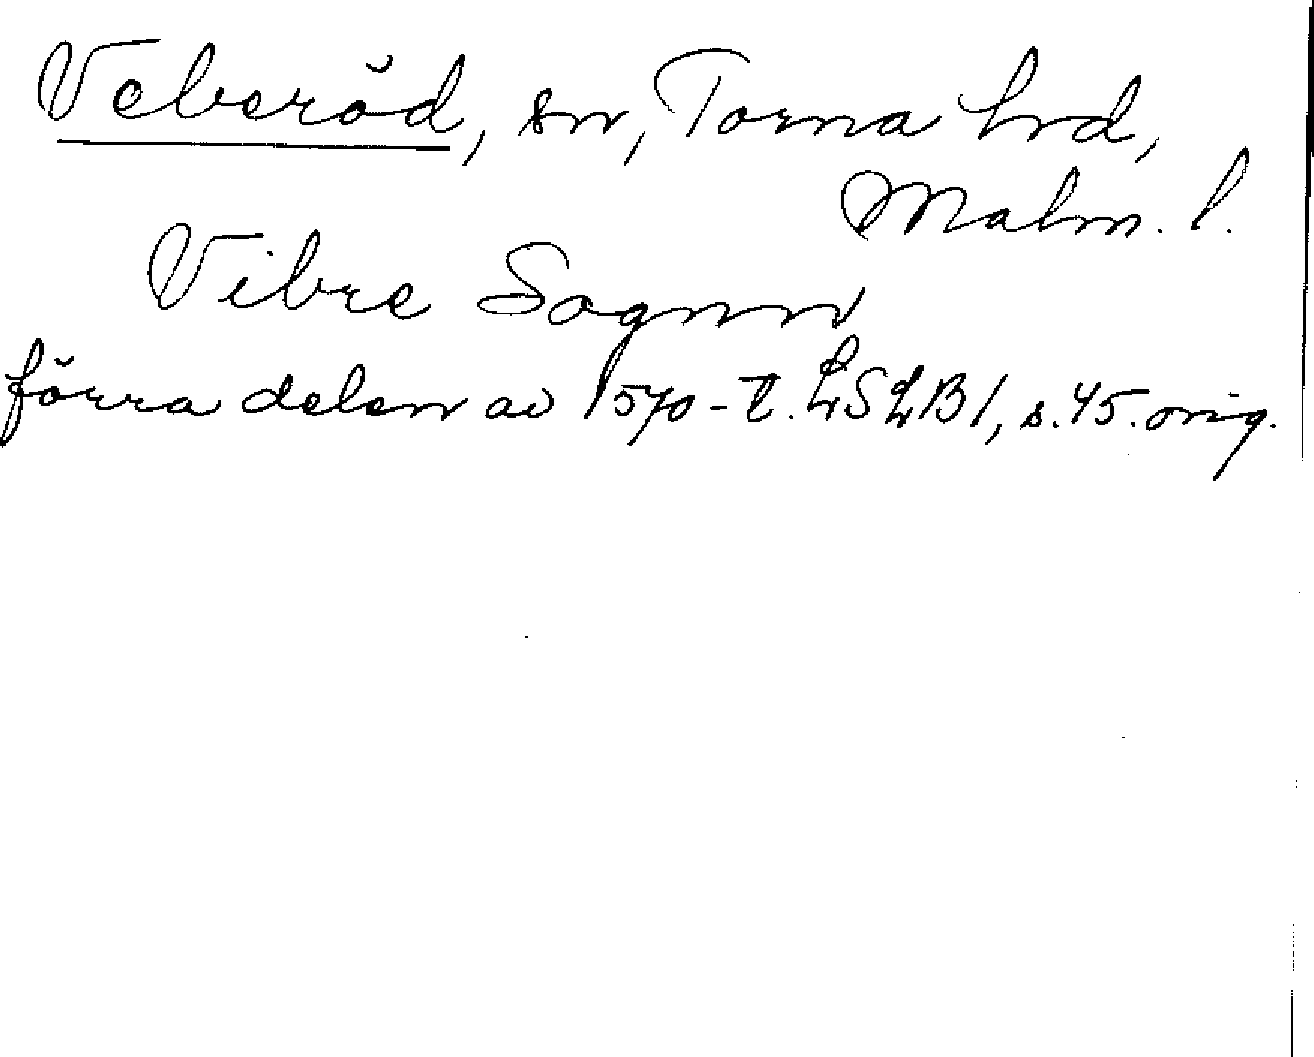 Veberöd, sn, Torna hrd,
Malm. l.
Vibre Sognn
förra delen av 1570-t. LSLB1, s. 45. orig.